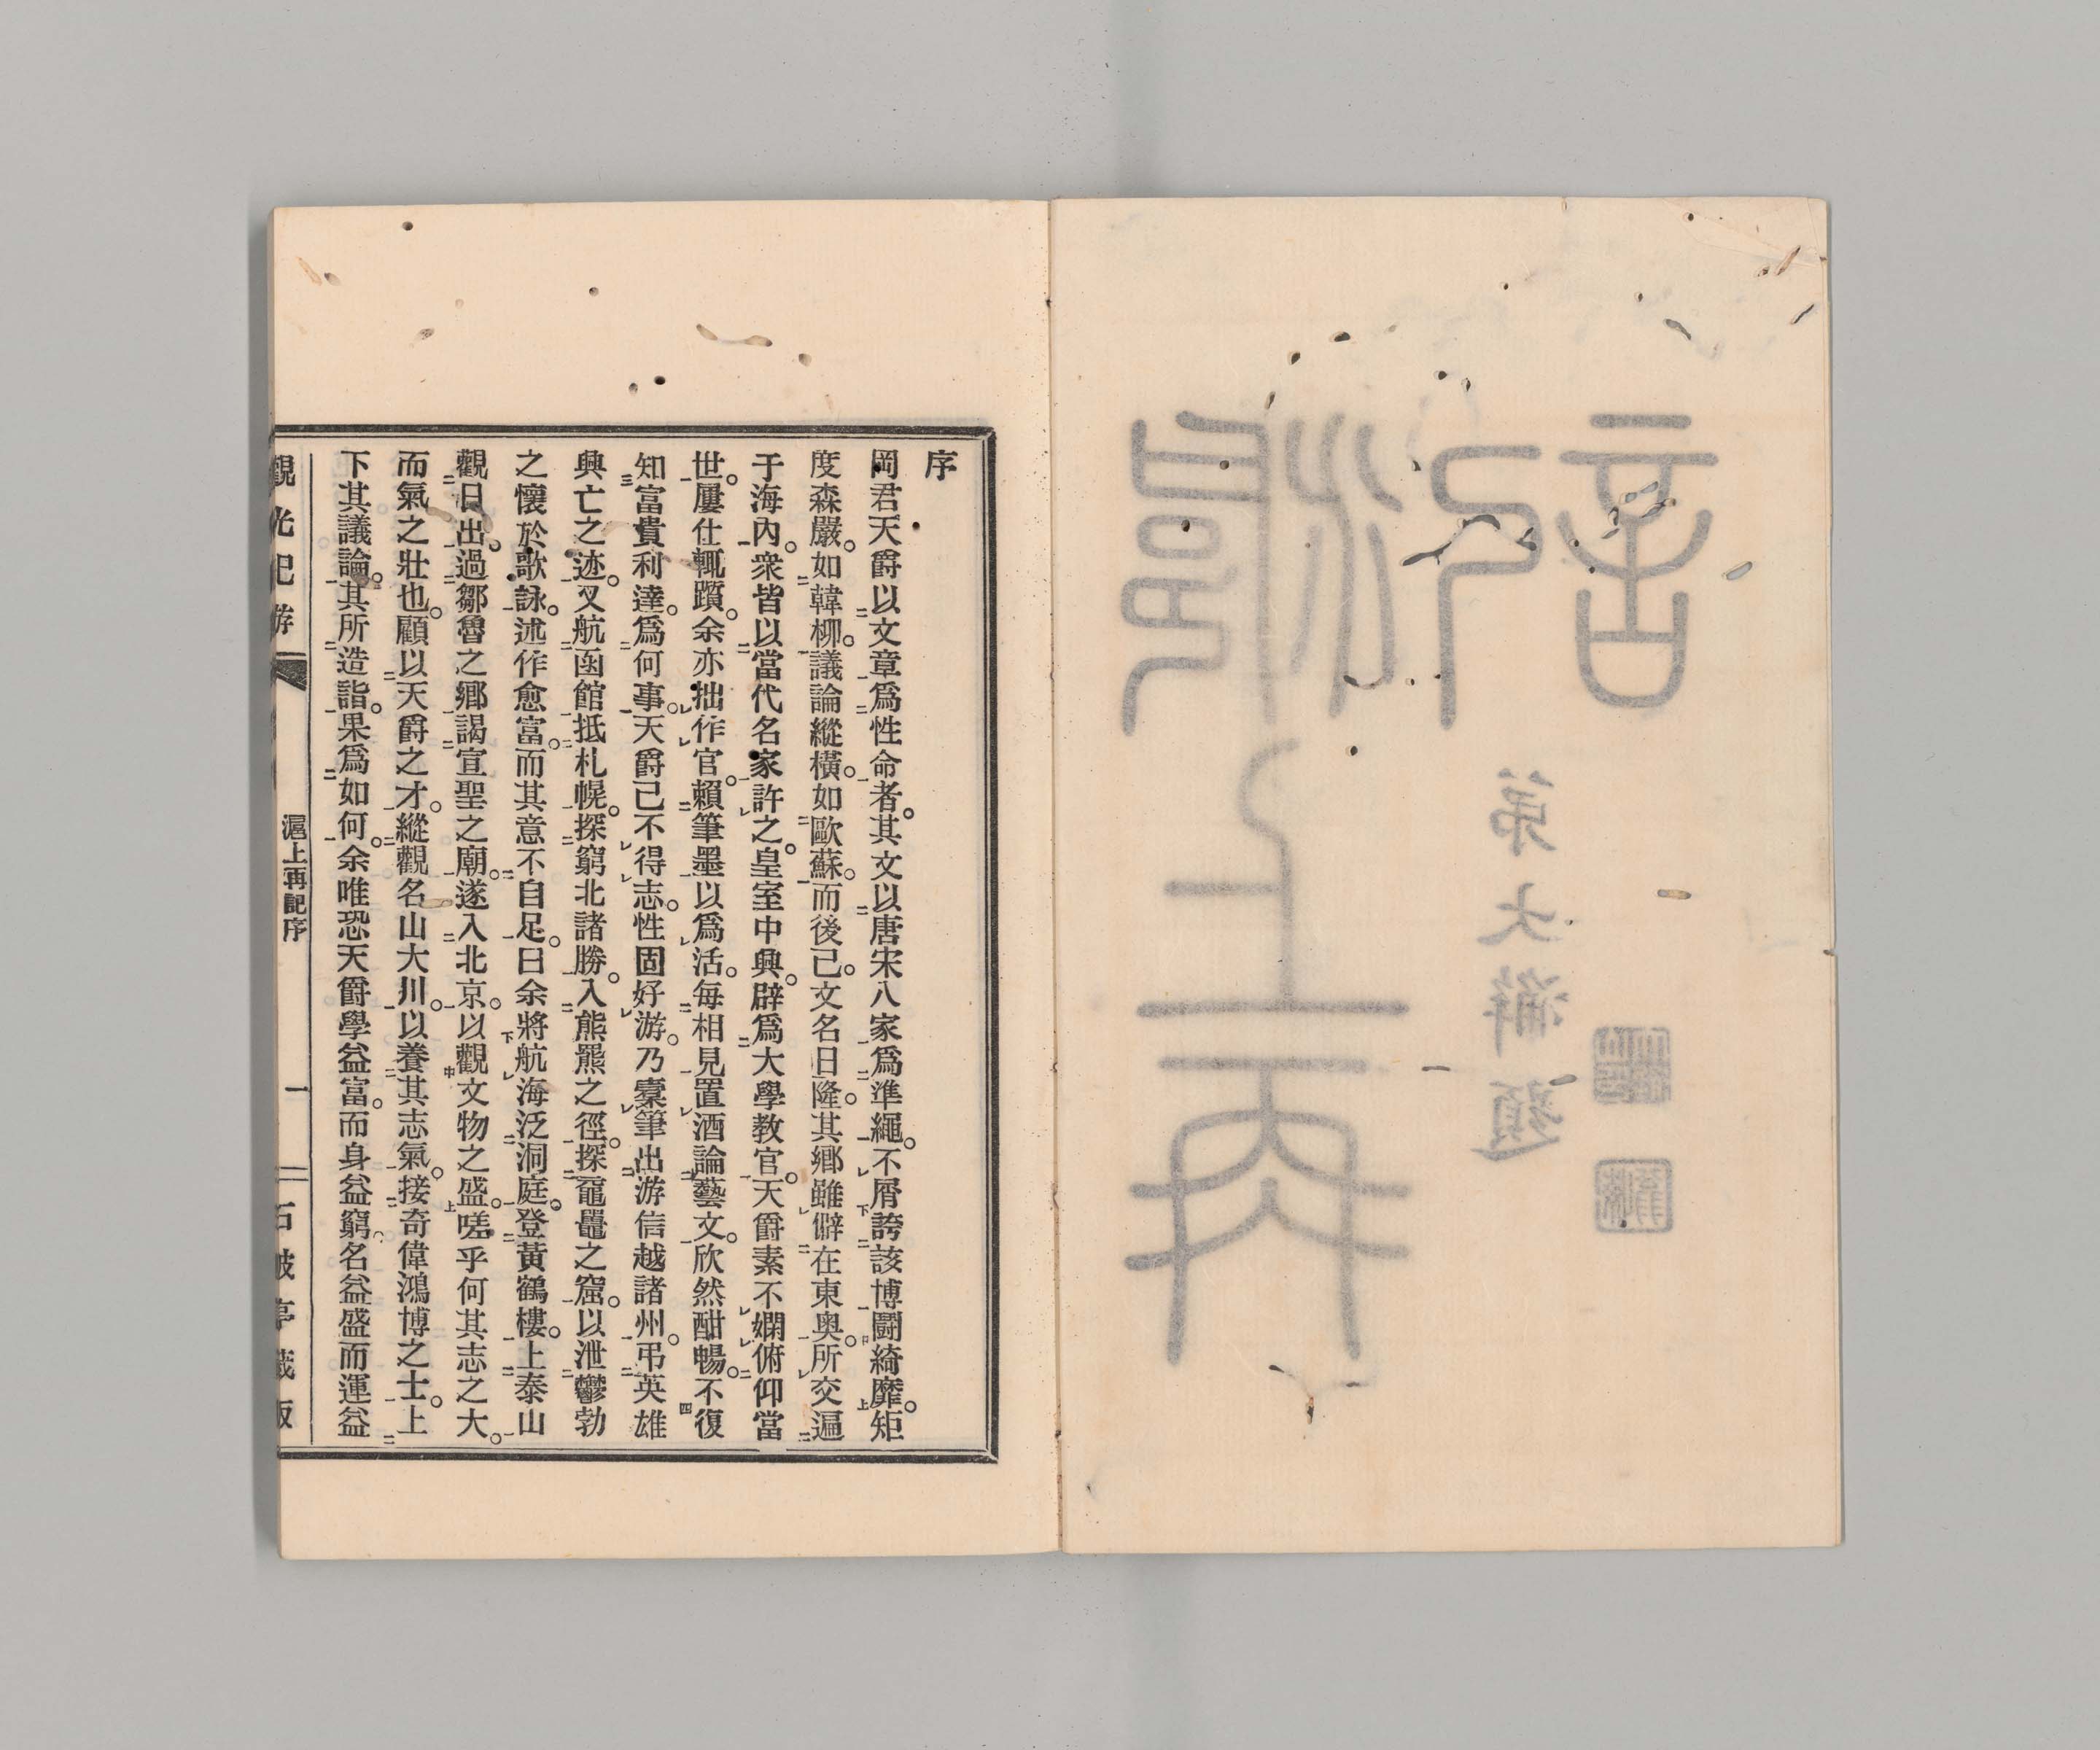 序
岡君天爵以文章爲性命者。其文以唐宋八家爲準繩。不屑誇該博鬪綺靡。矩
度森嚴。如韓柳。議論縱橫。如歐蘇。而後已。文名日隆。其鄉雖僻在東奧。所交遍
于海內。衆皆以當代名家許之。皇室中興。辟爲大學教官。天爵素不嫻俯仰當
世。屢仕輒躓。余亦拙作官。賴筆墨以爲活。每相見置酒論藝文。欣然酣暢。不復
知富貴利達。爲何事。天爵已不得志。性固好游。乃槖筆出游信越諸州。弔英雄
興亡之迹。又航函館抵札幌。探窮北諸勝。入熊羆之徑。探黿鼉之窟。以泄鬱勃
之懷於歌詠。述作愈富。而其意不自足。曰余將航海泛洞庭。登黃鶴樓。上泰山
觀日出。過鄒魯之鄉謁宣聖之廟。遂入北京。以觀文物之盛。嗟乎何其志之大。
而氣之壯也。顧以天爵之才。縱觀名山大川。以養其志氣。接奇偉鴻博之士。上
下其議論。其所造詣。果爲如何。余唯恐天爵學益富。而身益窮。名益盛而運益
觀光紀游
滬上再記序
一
石鼓亭藏版
滬上再
記序
弟大瀞題